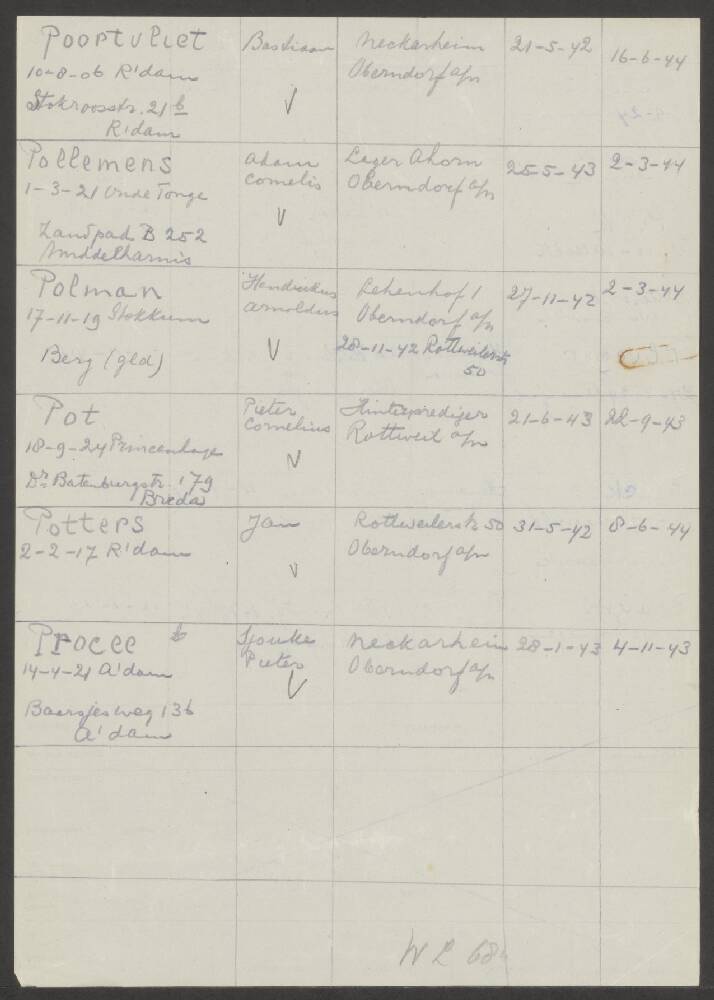 Poortvliet Bastiaan Neckarheim 21-5-42 16-6-44
10-8-06 R'dam Oberndorf a/n
Stokroosstr. 21 b √
R'dam
Pollemens Adam Lager Ahorn 25-5-43 2-3-44
1-3-21 Oude Tonge Cornelis Oberndorf a/n
√
Zandpad B 252
Middelharnis
Polman Hendrikus Lehenhof 1 27-11-42 2-3-44
17-11-19 Stokkum Arnoldus Oberndorf a/n
Berg (gld) √ 28-11-42 Rottweilerstr
50
Pot Pieter 21-6-43 22-9-43
18-9-24 Princenhage Cornelius Rottweil a/n
√
Dr. Batenburgstr. 179
Breda
Potters Jan Rottweilerstr 50 31-5-42 8-6-44
2-2-17 R'dam Oberndorf a/n
√
Procee Sjouke Neckarheim 28-1-43 4-11-43
14-4-21 A'dam Pieter Oberndorf a/n
√
Baarsjesweg 136
A'dam
W L 68